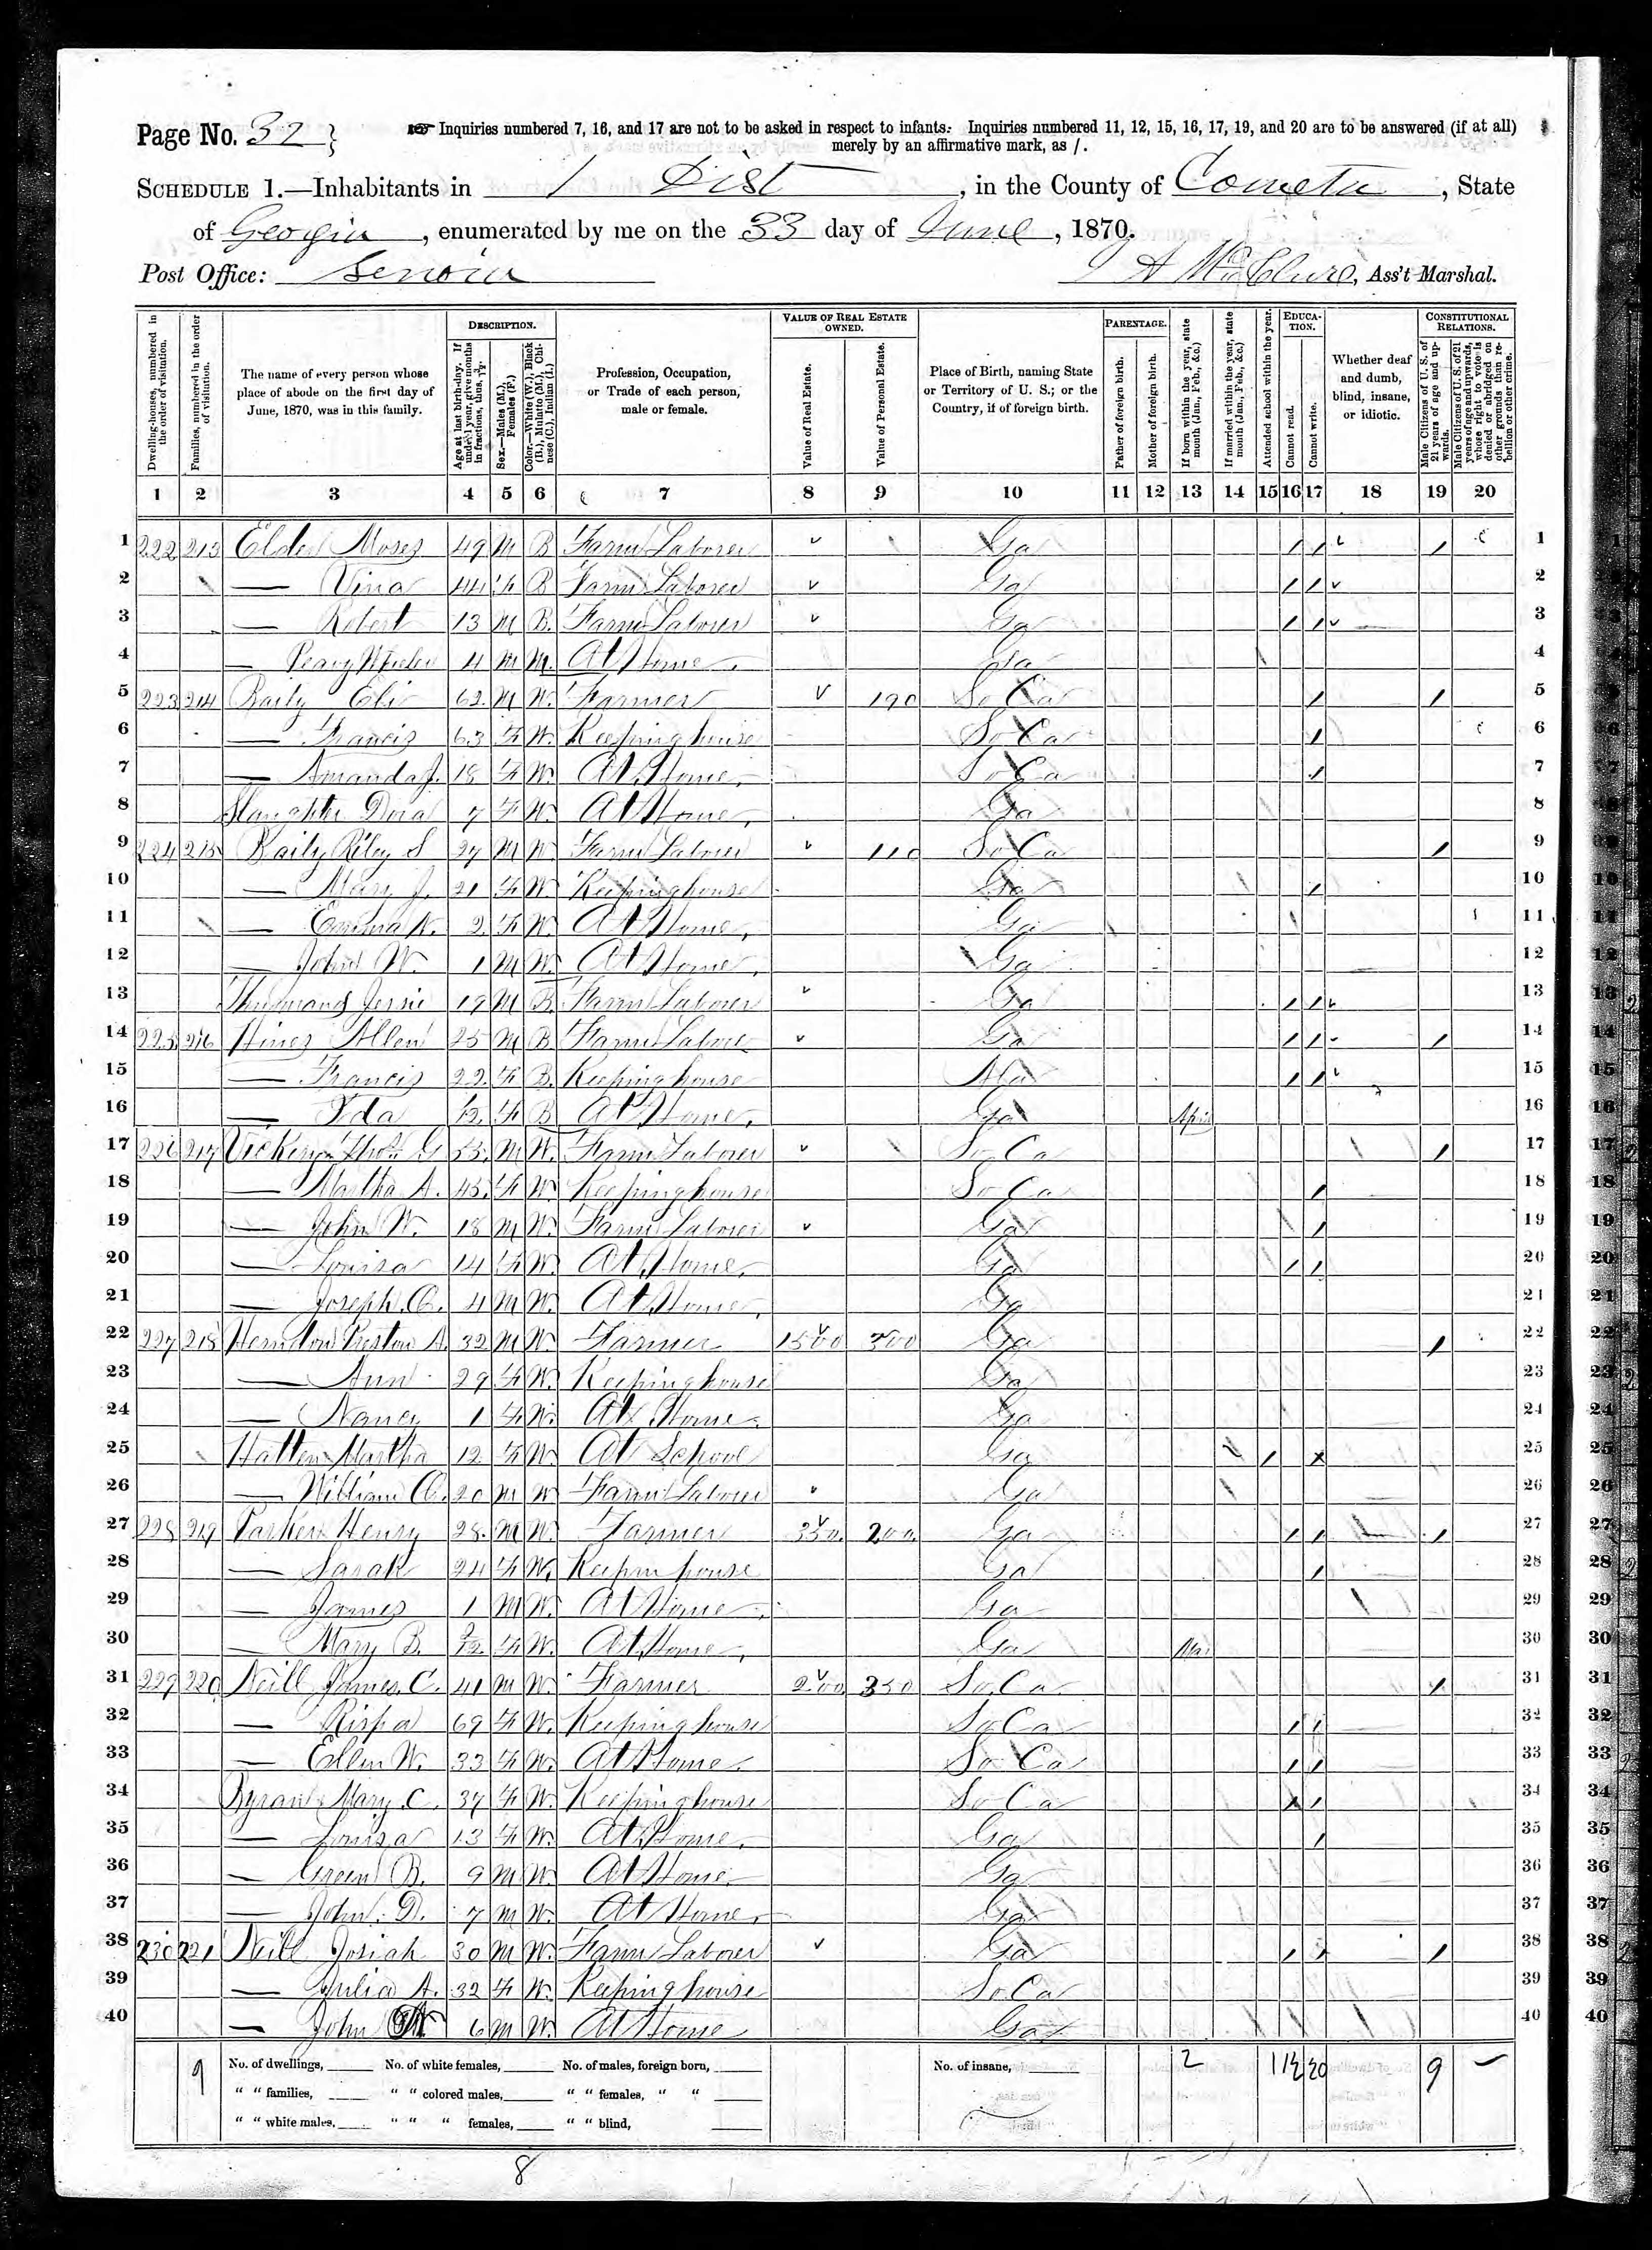 Page No. 32 } Inquiries numbered 7, 16, and 17 are not to be asked in respect to infants. Inquiries numbered 11, 12, 15, 16, 17, 19, and 20 are to be answered (if at all)
merely by an affirmative mark, as /.
SCHEDULE 1.—Inhabitants in 1 Dist, in the County of Coweta, State
of Georgia, enumerated by me on the 33 day of June, 1870.
Post Office: Senoia A McClure, Ass't Marshal.
Dwelling-houses, numbered in the order of visitation.
Families, numbered in the order of visitation.
The name of every person whose place of abode on the first day of June, 1870, was in this family.
DESCRIPTION.
Age at last birth-day. If under 1 year, give months in fractions, thus, 3/12.
Sex.—Males (M.), Females (F.)
Color.—White (W.), Black (B.), Mulatto (M.), Chinese (C.), Indian (I.)
Profession, Occupation, or Trade of each person, male or female.
VALUE OF REAL ESTATE OWNED.
Value of Real Estate.
Value of Personal Estate.
Place of Birth, naming State or Territory of U. S.; or the Country, if of foreign birth.
PARENTAGE.
Father of foreign birth.
Mother of foreign birth.
If born within the year, state month (Jan., Feb., &c.)
If married within the year, state month (Jan., Feb., &c.)
Attended school within the year.
EDUCATION.
Cannot read.
Cannot write.
Whether deaf and dumb, blind, insane, or idiotic.
CONSTITUTIONAL RELATIONS.
Male Citizens of U. S. of 21 years of age and upwards.
Male Citizens of U. S. of 21 years of age and upwards, whose right to vote is denied or abridged on other grounds than rebellion or other crime.
1 2 3 4 5 6 7 8 9 10 11 12 13 14 15 16 17 18 19 20
1 222 213 Elder Moses 49 M B Farm Laborer Ga / / / 1
2 — Vina 44 F B Farm Laborer Ga / / 2
3 — Robert 13 M B. Farm Laborer Ga / / 3
4 — 4 M M. At Home Ga 4
5 223 214 Baily Eli 62 M W. Farmer 190 So Ca / / 5
6 — Francis 63 F W. Keeping house So Ca / 6
7 — Amanda J. 18 F W. At Home So Ca / 7
8 Slaughter Dora 7 F W. At Home Ga 8
9 224 215 Baily Riley S 27 M W Farm Laborer 110 So Ca / 9
10 — Mary J. 21 F W Keeping house Ga / 10
11 — Emma 2 F W. At Home Ga 11
12 — John W. 1 M W. At Home Ga 12
13 Jessie 19 M B. Farm Laborer Ga / / 13
14 225 216 Hines Allen 25 M B. Farm Labore Ga / / / 14
15 — Francis 22 F B. Keeping house Ala / / 15
16 — Ida /12 F B At Home Ga April 16
17 226 217 G 55 M W. Farm Laborer So Ca / 17
18 — Martha A. 45 F W Keeping house So Ca / 18
19 — John W. 18 M W. Farm Laborer Ga / 19
20 — Louisa 14 F W. At Home Ga / / 20
21 — Joseph C. 4 M W. At Home Ga 21
22 227 218 Herndon Preston A. 32 M W. Farmer 1500 300 Ga / 22
23 — Ann 29 F W. Keeping house Ga 23
24 — Nancy 1 F W. At Home Ga 24
25 Hatten Martha 12 F W At School Ga / x 25
26 — William C. 20 M W Farm Laborer Ga 26
27 228 219 Parker Henry 28 M W. Farmer 350 200 Ga / / / 27
28 — Sarah 24 F W. Keepin house Ga / 28
29 — James 1 M W. At Home Ga 29
30 — Mary B. /12 F W. At Home Ga Mar 30
31 229 220 Neill James C. 41 M W. Farmer 200 350 So. Ca / 31
32 — Rispa 69 F W. Keeping house So Ca / / 32
33 — Ellen W. 33 F W. At Home So Ca / / 33
34 Byram Mary C. 37 F W. Keeping house So Ca x / 34
35 — Louisa 13 F W. At Home Ga / 35
36 — Green B. 9 M W. At Home Ga 36
37 — John D. 7 M W. At Home Ga 37
38 230 221 Neill Josiah 30 M W. Farm Laborer Ga / / / 38
39 — Julia A. 32 F W. Keeping house So. Ca 39
40 — John 6 M W. At Home Ga 40
9 No. of dwellings, No. of white females, No. of males, foreign born, No. of insane, 2 1 12 20 9 —
" " families, " " colored males, " " females, " "
" " white males, " " " females, " " blind,
8